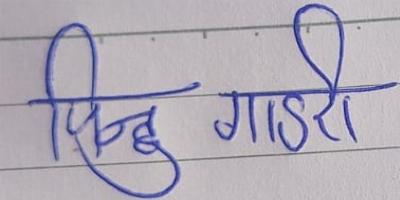 पिन्टु गाडरी